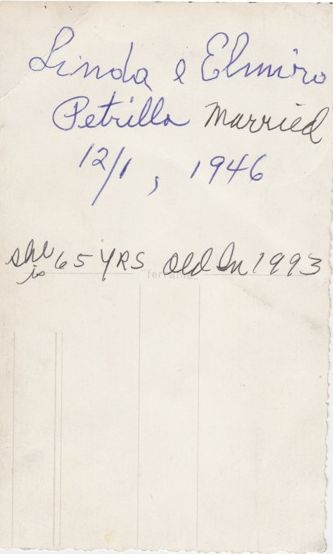 Linda e Elmiro
Petrilla Married
12/1, 1946
she is 65 YRS old In 1993
ferrania